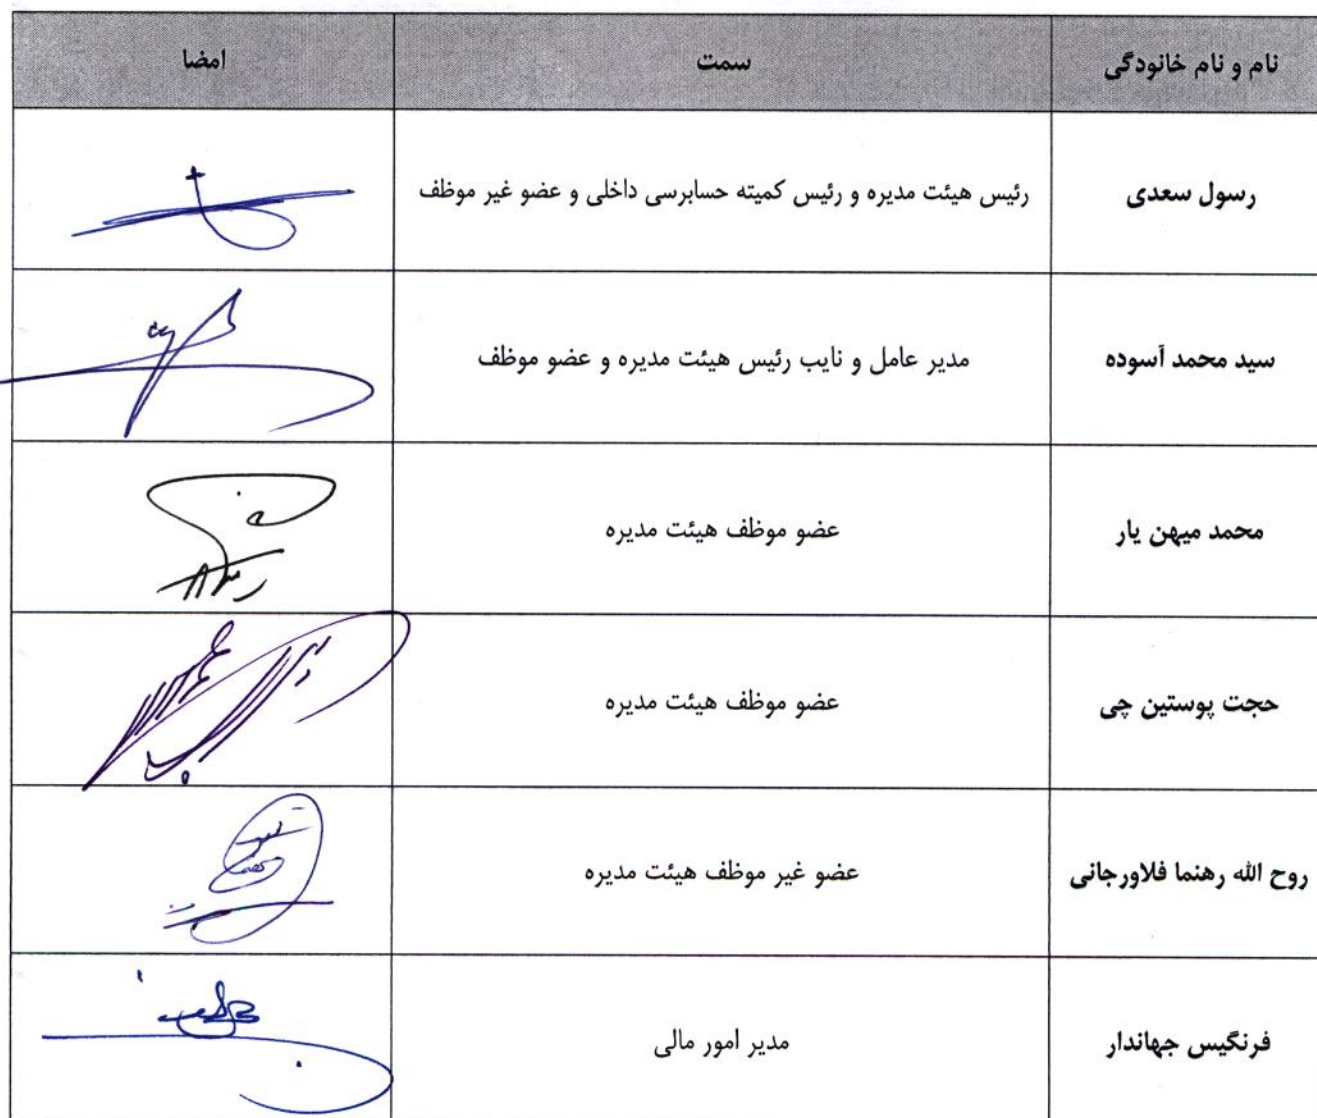 نام و نام خانودگی سمت امضا
رسول سعدی رئیس هیئت مدیره و رئیس کمیته حسابرسی داخلی و عضو غیر موظف
سید محمد آسوده مدیر عامل و نایب رئیس هیئت مدیره و عضو موظف
محمد میهن یار عضو موظف هیئت مدیره
حجت پوستین چی عضو موظف هیئت مدیره
روح الله رهنما فلاورجانی عضو غیر موظف هیئت مدیره
فرنگیس جهاندار مدیر امور مالی